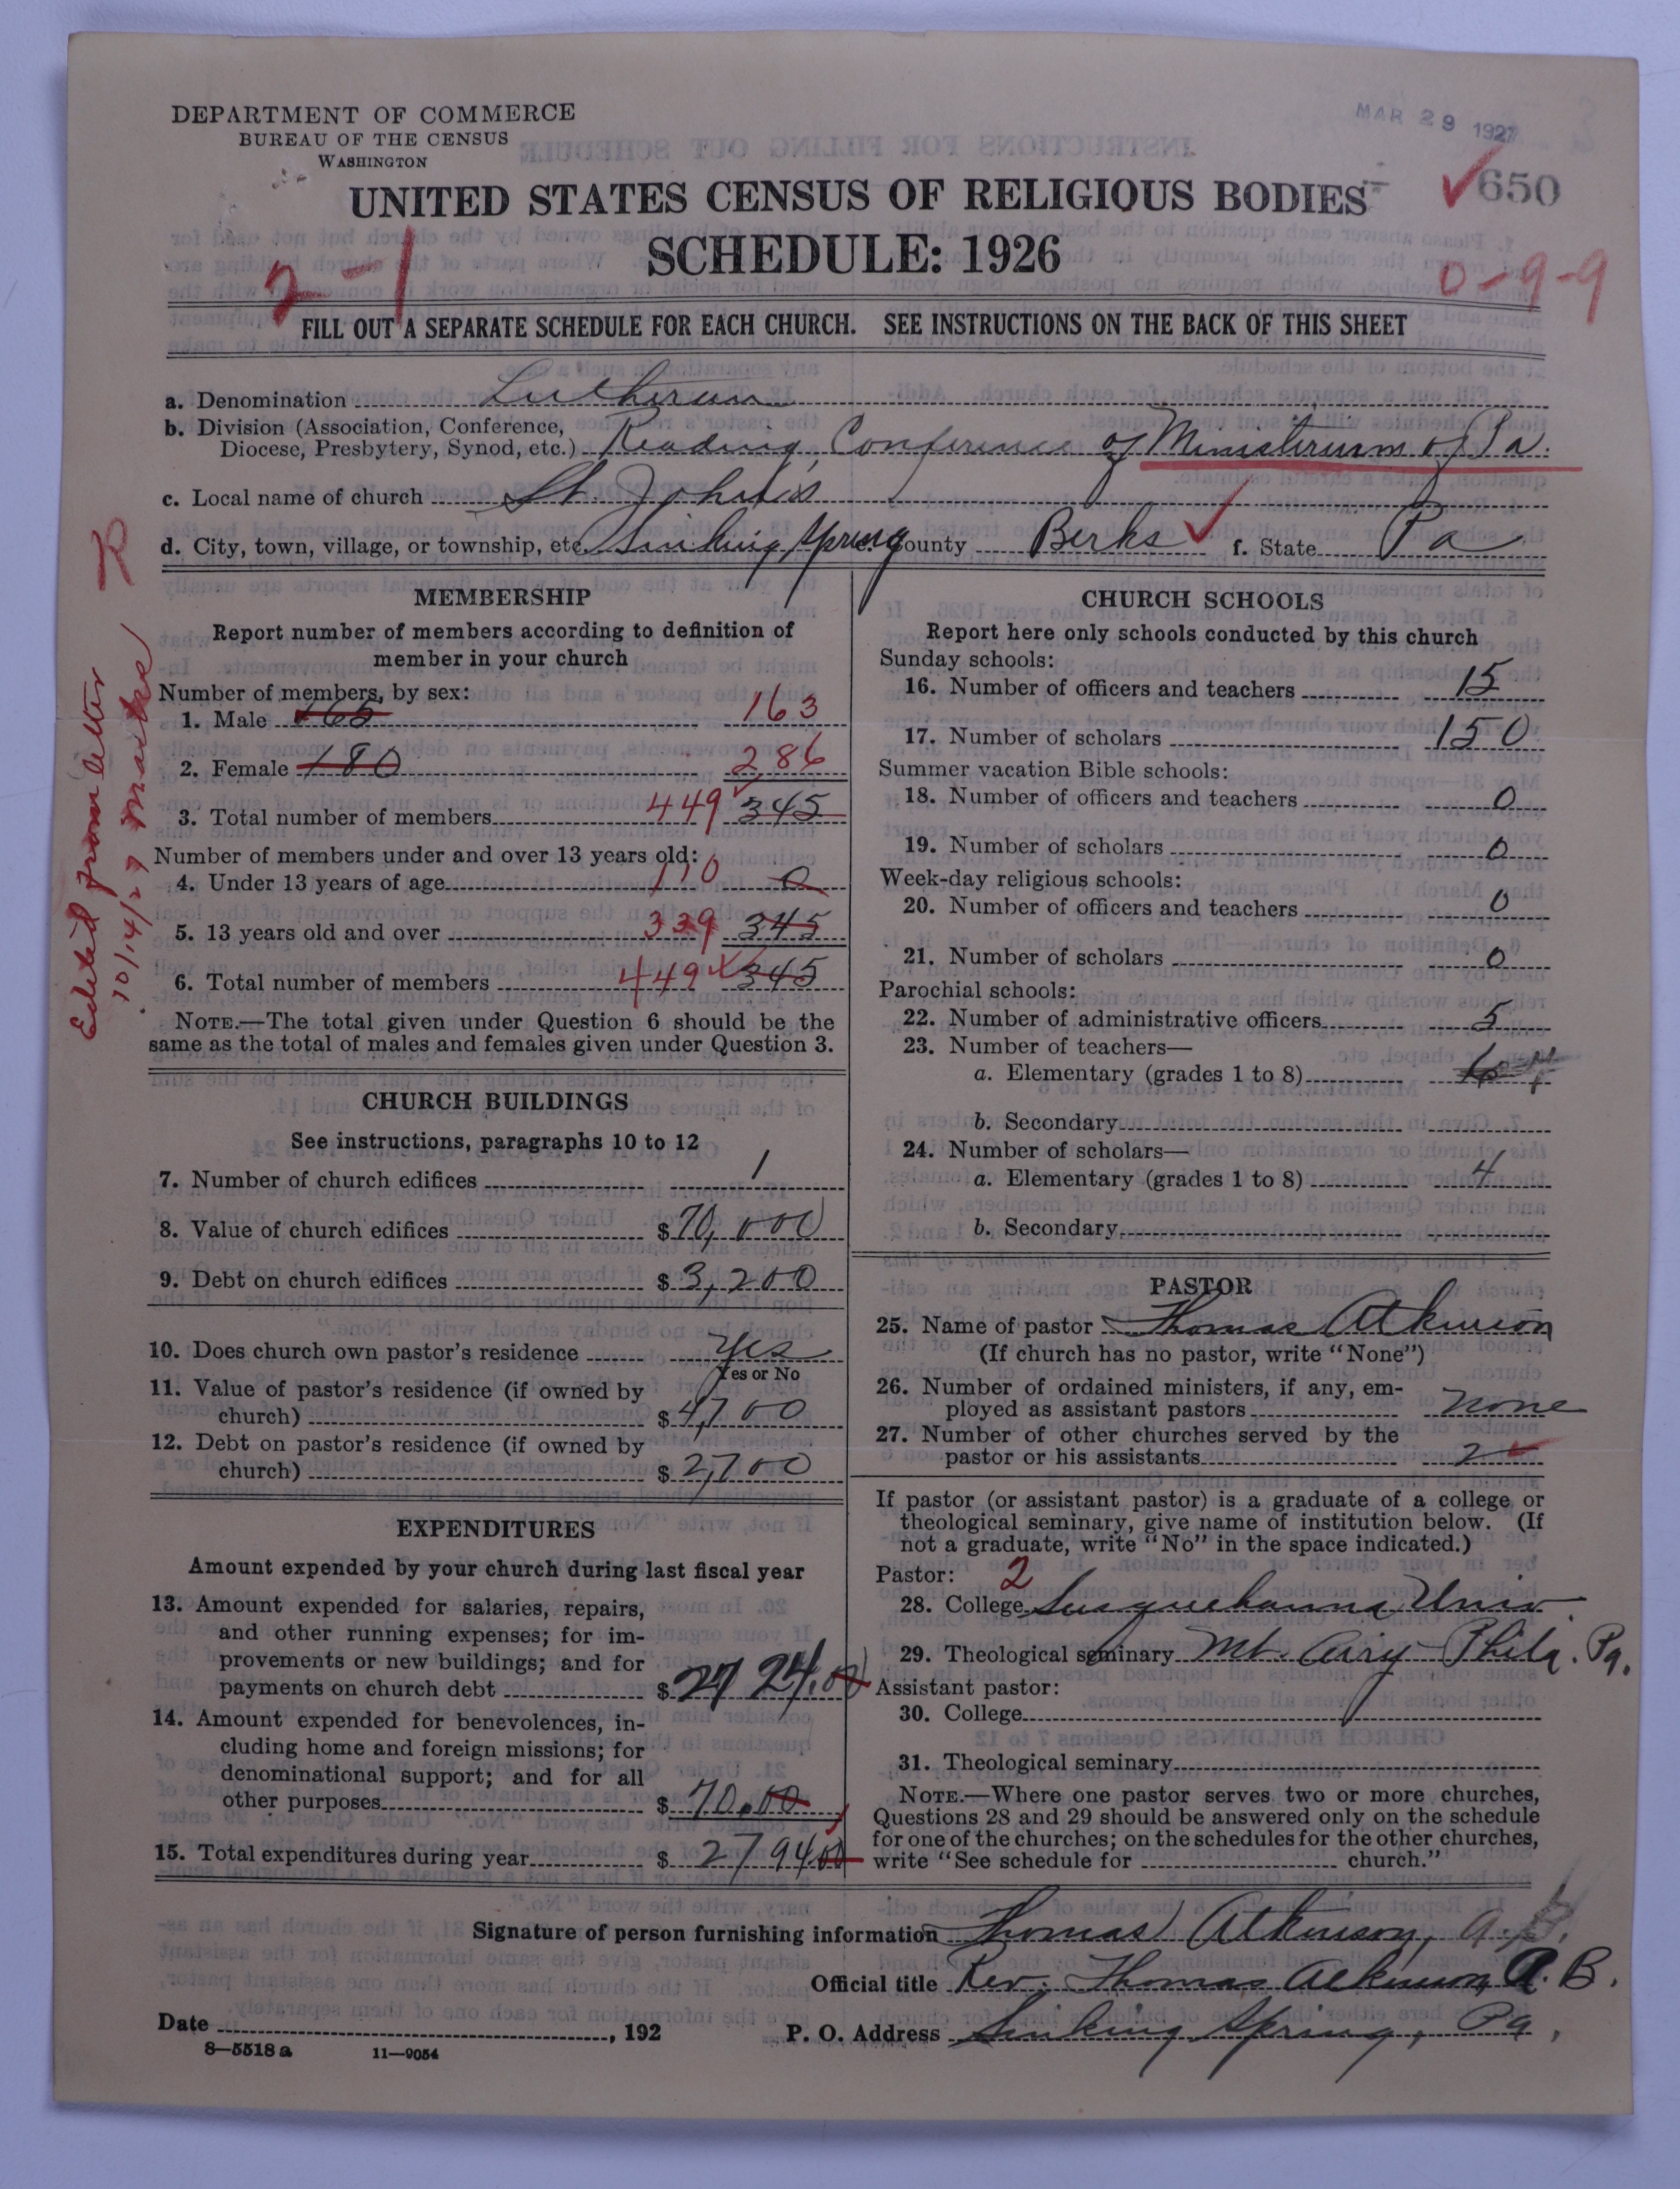 DEPARTMENT OF COMMERCE
BUREAU OF THE CENSUS
WASHINGTON
MAR 29 1927
650
UNITED STATES CENSUS OF RELIGIOUS BODIES
SCHEDULE: 1926
2-1
0-9-9
FILL OUT A SEPARATE SCHEDULE FOR EACH CHURCH. SEE INSTRUCTIONS ON THE BACK OF THIS SHEET
a. Denomination Lutheran
b. Division (Association, Conference,
Diocese, Presbytery, Synod, etc.) Reading Conference of Ministerium of Pa.
c. Local name of church St. John's
d. City, town, village, or township, etc. Sinking Spring County Berks f. State Pa
Edited from letter
10/14/27
MEMBERSHIP
Report number of members according to definition of
member in your church
Number of members, by sex:
1. Male 165 163
2. Female 180 286
3. Total number of members 449 345
Number of members under and over 13 years old:
4. Under 13 years of age 110 0
5. 13 years old and over 339 345
6. Total number of members 449 345
NOTE.—The total given under Question 6 should be the
same as the total of males and females given under Question 3.
CHURCH BUILDINGS
See instructions, paragraphs 10 to 12
7. Number of church edifices 1
8. Value of church edifices $ 70,000
9. Debt on church edifices $ 3,200
10. Does church own pastor's residence Yes
Yes or No
11. Value of pastor's residence (if owned by
church) $ 4,700
12. Debt on pastor's residence (if owned by
church) $ 2,700
EXPENDITURES
Amount expended by your church during last fiscal year
13. Amount expended for salaries, repairs,
and other running expenses; for im-
provements or new buildings; and for
payments on church debt $ 2724.00
14. Amount expended for benevolences, in-
cluding home and foreign missions; for
denominational support; and for all
other purposes $ 70.00
15. Total expenditures during year $ 2794.00
CHURCH SCHOOLS
Report here only schools conducted by this church
Sunday schools:
16. Number of officers and teachers 15
17. Number of scholars 150
Summer vacation Bible schools:
18. Number of officers and teachers 0
19. Number of scholars 0
Week-day religious schools:
20. Number of officers and teachers 0
21. Number of scholars 0
Parochial schools:
22. Number of administrative officers 5
23. Number of teachers—
a. Elementary (grades 1 to 8)
b. Secondary
24. Number of scholars—
a. Elementary (grades 1 to 8) 4
b. Secondary
PASTOR
25. Name of pastor Thomas Atkinson
(If church has no pastor, write "None")
26. Number of ordained ministers, if any, em-
ployed as assistant pastors None
27. Number of other churches served by the
pastor or his assistants 2
If pastor (or assistant pastor) is a graduate of a college or
theological seminary, give name of institution below. (If
not a graduate, write "No" in the space indicated.)
Pastor: 2
28. College Susquehanna Univ.
29. Theological seminary Mt. Airy Phila. Pa.
Assistant pastor:
30. College
31. Theological seminary
NOTE.—Where one pastor serves two or more churches,
Questions 28 and 29 should be answered only on the schedule
for one of the churches; on the schedules for the other churches,
write "See schedule for church."
Signature of person furnishing information Thomas Atkinson, A.B.
Official title Rev. Thomas Atkinson, A.B.
Date , 192
P. O. Address Sinking Spring, Pa.
8—5518 a 11—9054